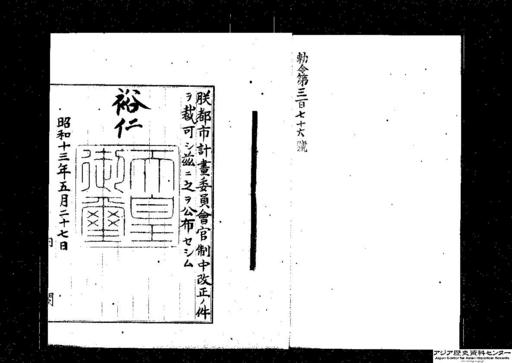 勅令第三百七十六號
朕都市計畫委員會官制中改正ノ件
ヲ裁可シ茲ニ之ヲ公布セシム
裕仁
天皇御璽
昭和十三年五月二十七日
アジア歴史資料センター
Japan Center for Asian Historical Records